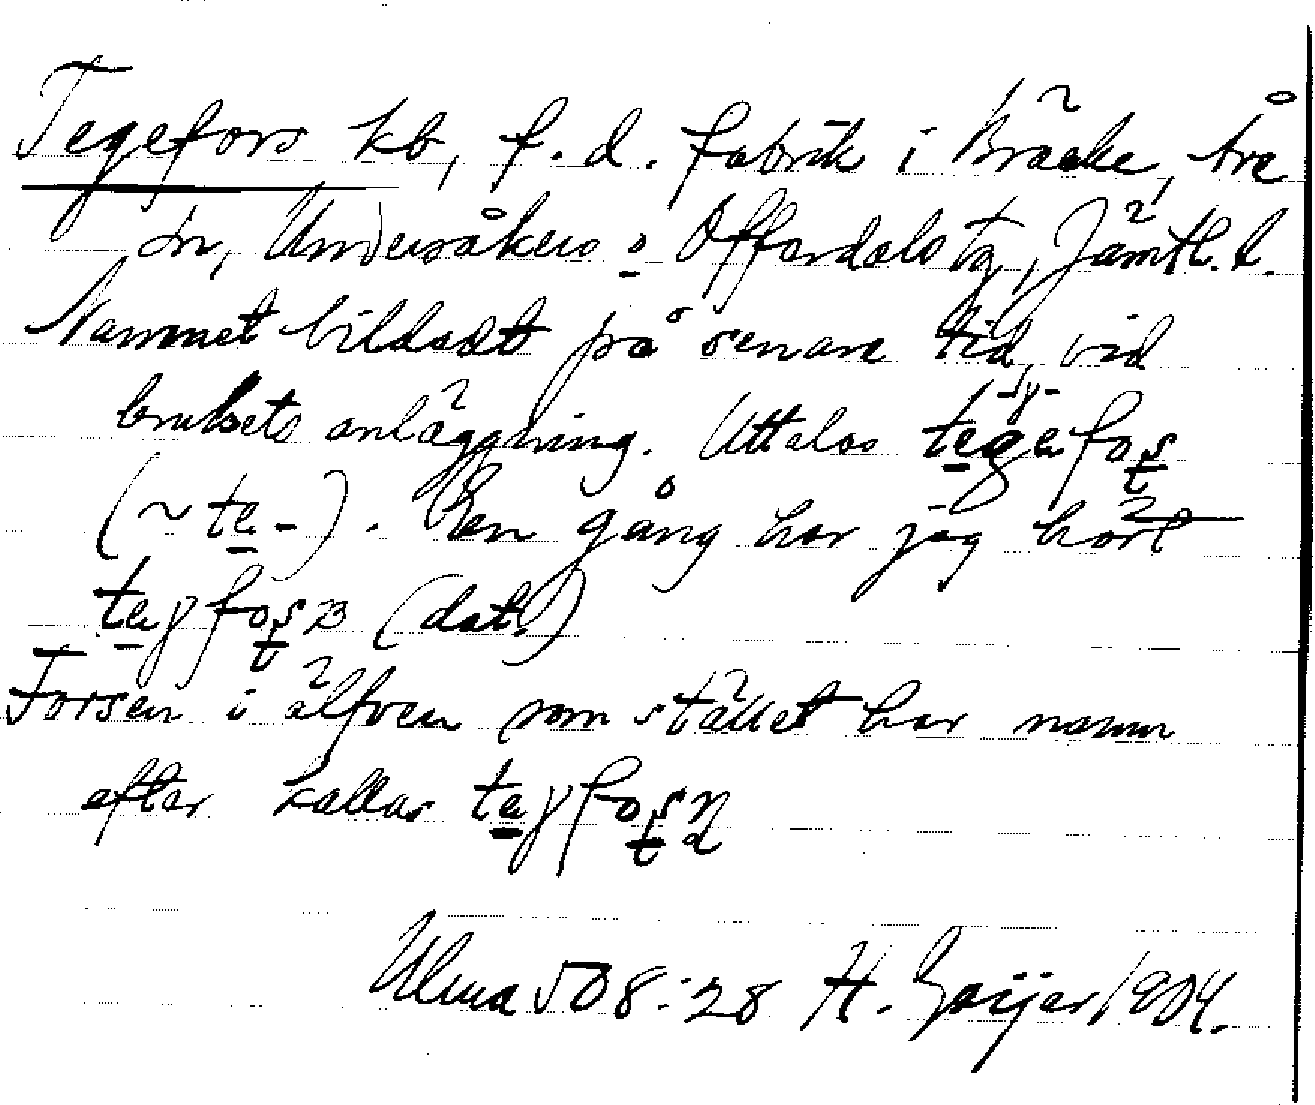 Tegefors kb, f. d. fabrik i Bräcke, Åre
sn, Undersåkers o Offerdals tg, Jämtl. l.
Namnet bildadt på senare tid, vid
brukets anläggning. Uttalas
(~ te-). En gång har jag hört
(dat.)
Forsen i älfven som stället har namn
efter kallas
Ulma 508:28 H. Geijer 1904.